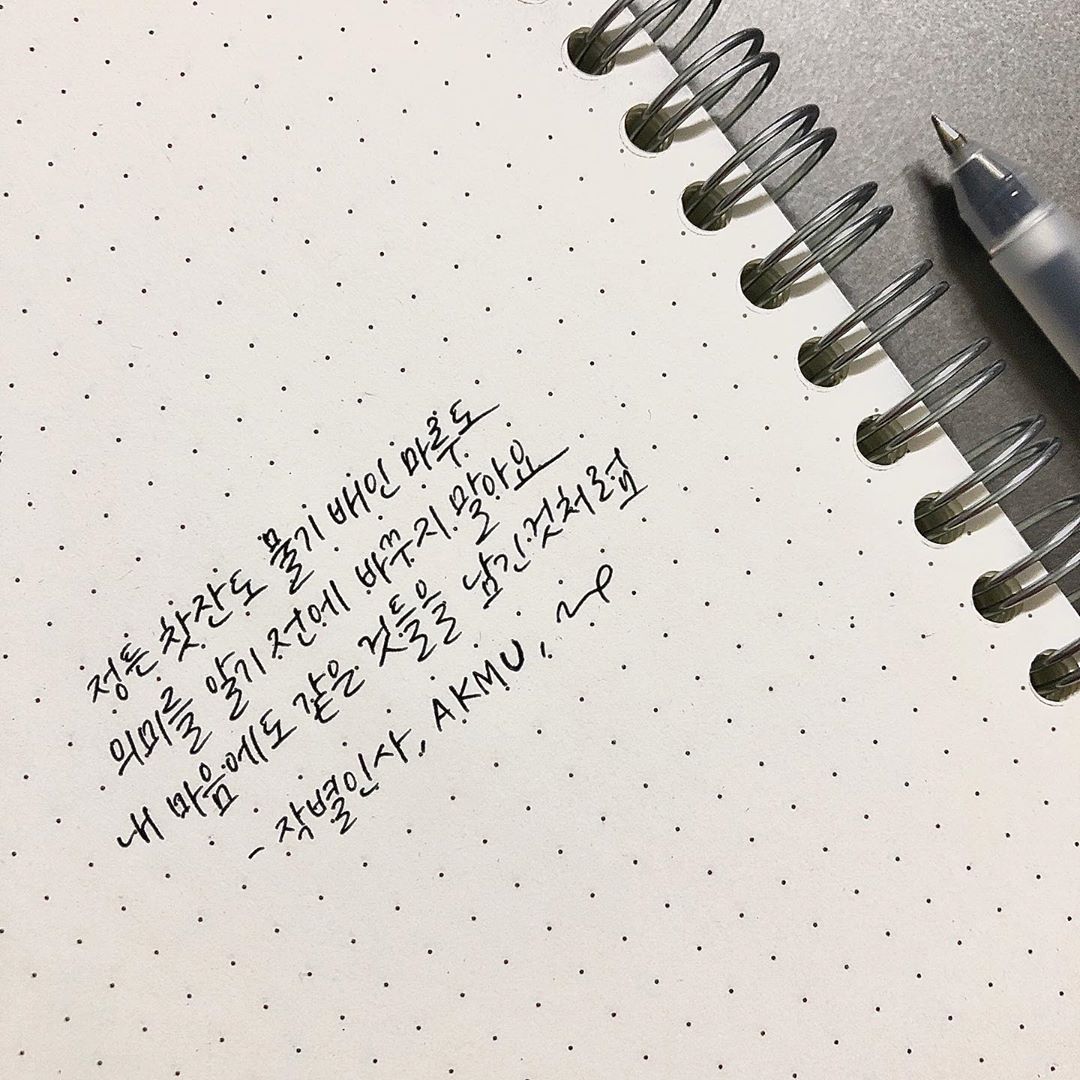 정든 찻잔도 물기 배인 마루도
의미를 알기 전에 바꾸지 말아요
내 마음에도 같은 것들을 남긴것처럼
- 작별인사, AKMU,